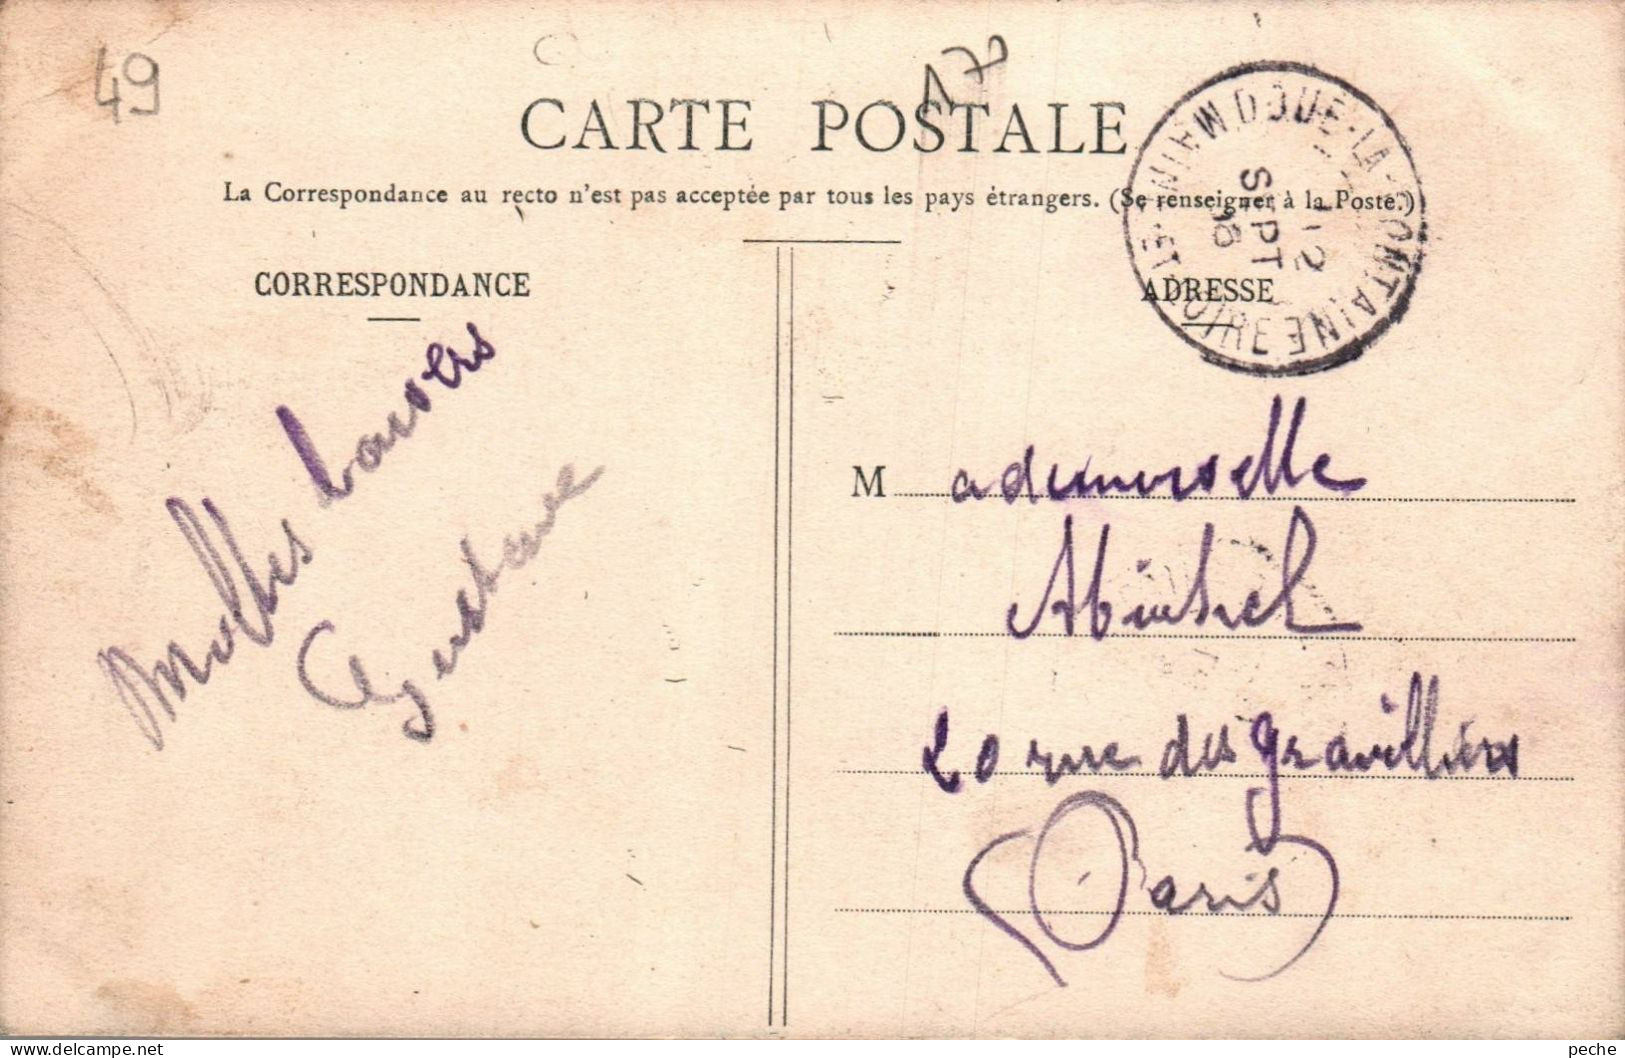 49
170
CARTE POSTALE
La Correspondance au recto n'est pas acceptée par tous les pays étrangers. (Se renseigner à la Poste.)
DOUÉ-LA-FONTAINE
MAINE-ET-LOIRE
12
SEPT
06
CORRESPONDANCE
ADRESSE
baisers
Gustave
Mademoiselle
20 rue des gravilliers
Paris
peche